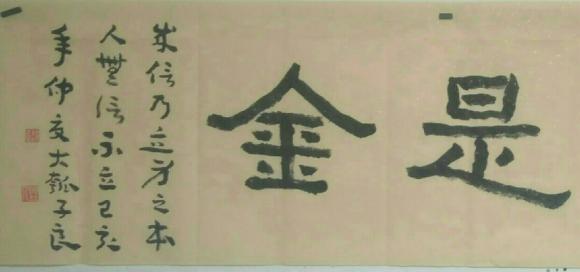 是金
诚信乃立身之本
人無信不立己亥
年仲夏大瓠子良